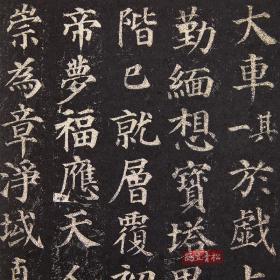 大車其一於戲上
勤緬想寶塔思
階已就層覆初
帝夢福應天人
崇為章淨域真